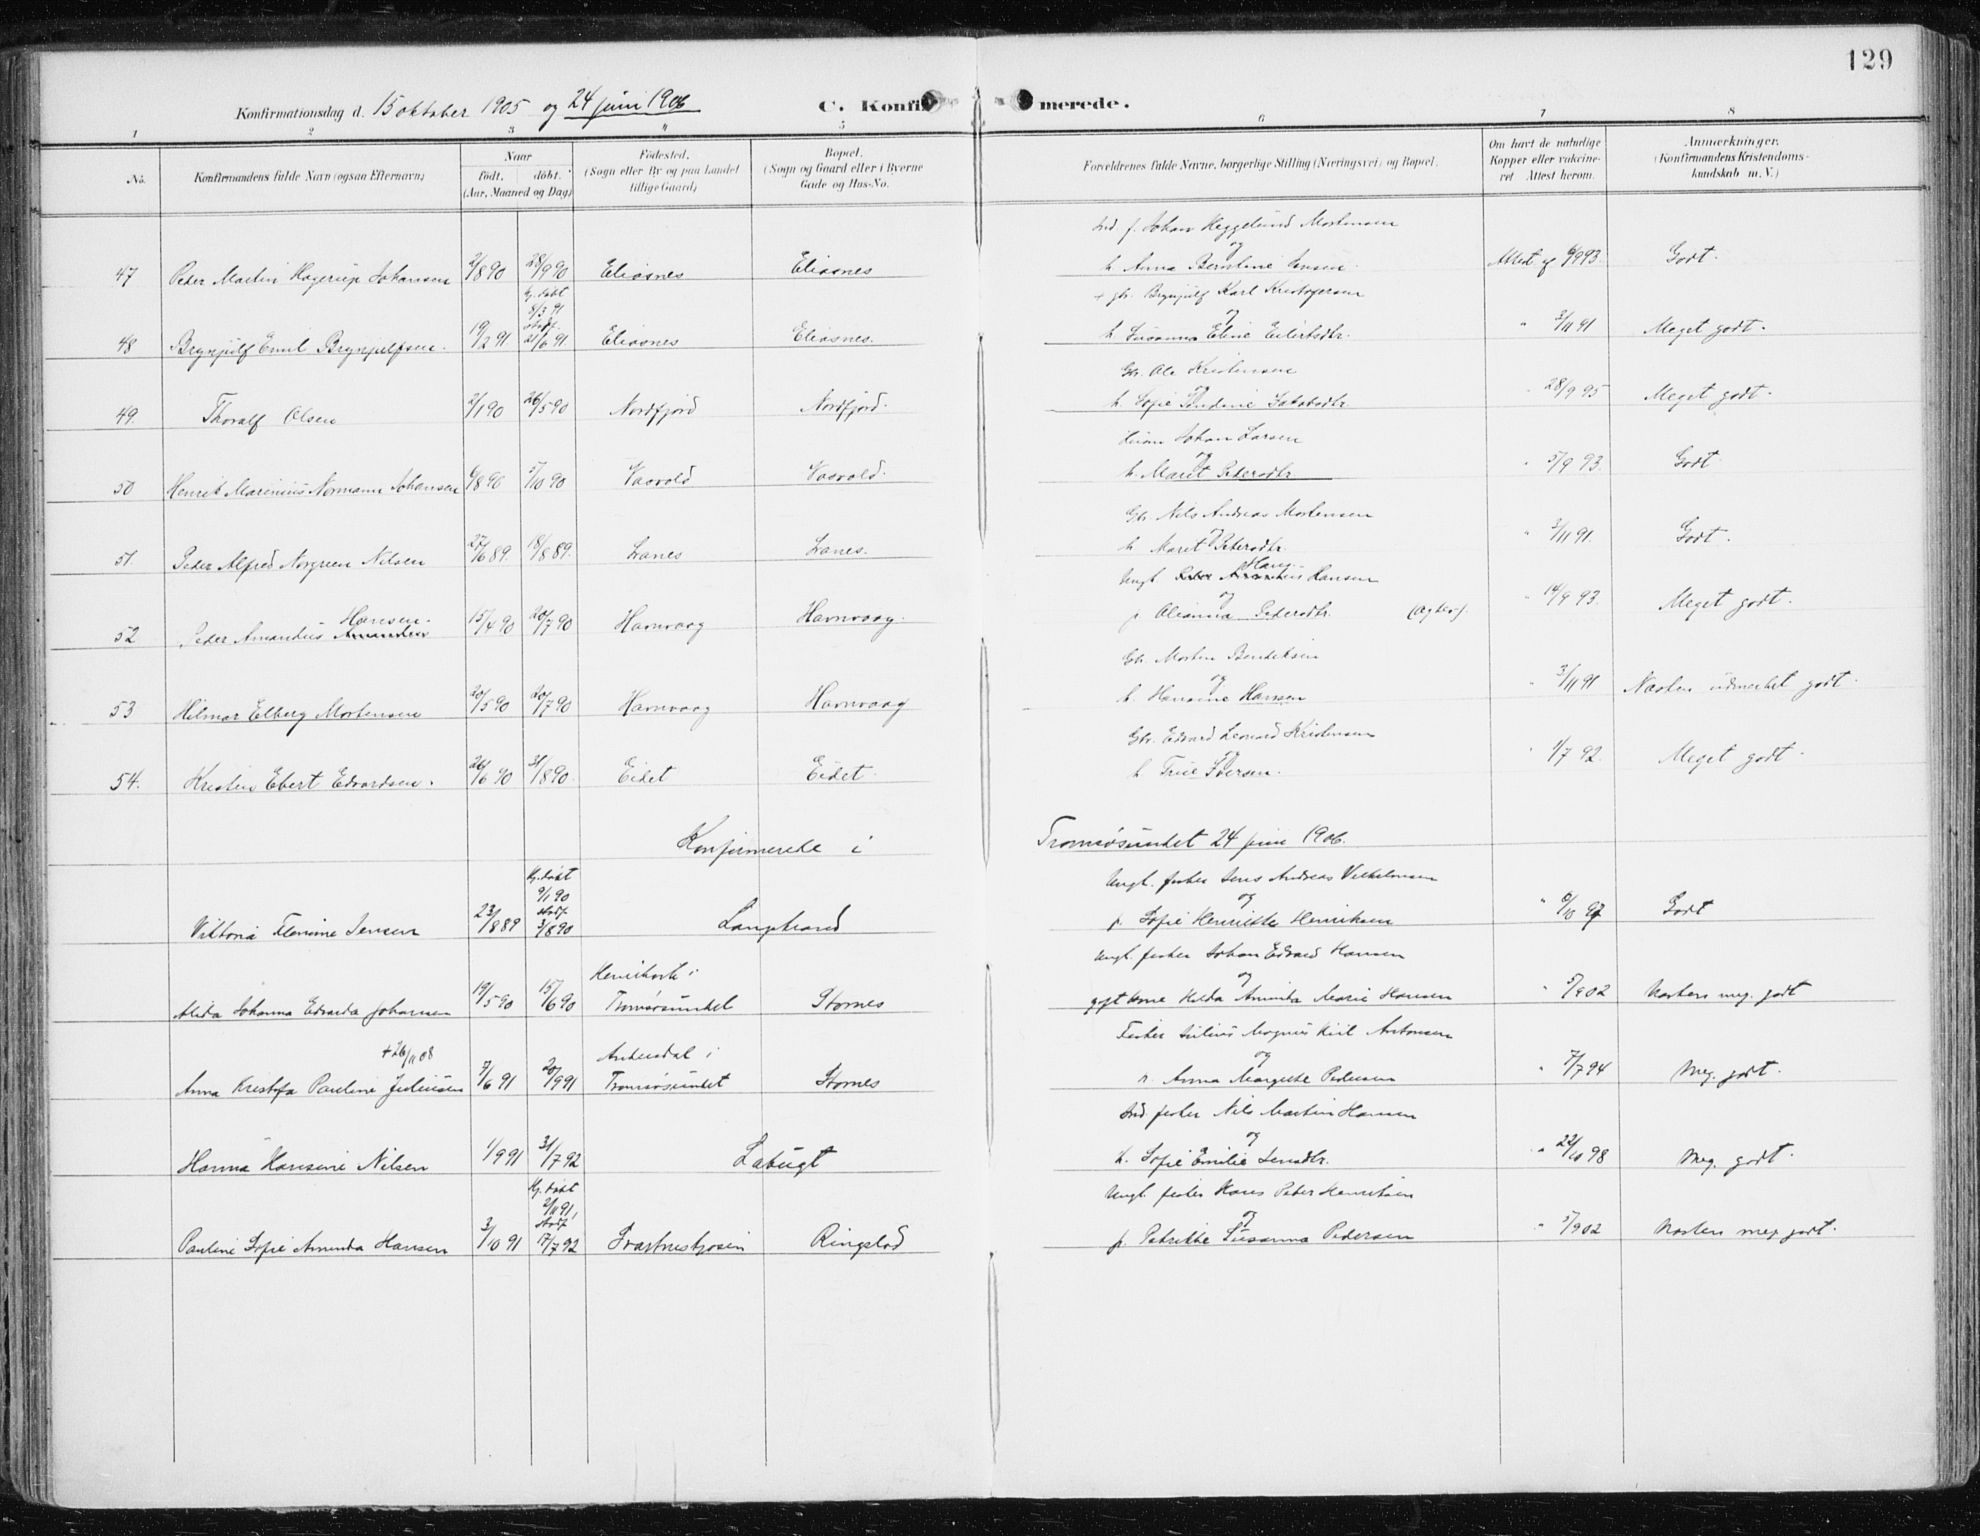 129
Konfirmationsdag d. 15 oktober 1905 og 24 juni 1906 C. Konfirmerede.
1 2 3 4 5 6 7 8
No. Konfirmandens fulde Navn (ogsaa Efternavn) Naar født. døbt. (Aar, Maaned og Dag) Fødested. (Sogn eller By og paa Landet tillige Gaard) Bopæl. (Sogn og Gaard eller i Byerne Gade og Hus-No. Forældrenes fulde Navne, borgerlige Stilling (Næringsvei) og Bopæl. Om havt de naturlige Kopper eller vakcineret Attest herom. Anmærkninger. (Konfirmandens Kristendomskundskab m. V.)
Ind. f. Johan Heggelund Mortensen
og
47 Peder Martin Hagerup Johansen 2/8 90 28/9 90 Eliasnes Eliasnes h. Anna Berntine Jensen. Attest af 6/9 93. Godt.
Hj. døbt 8/3 91 + gbr. Brynjulf Karl Kristofersen
stadf. og
48 Brynjulf Emil Brynjulfsen. 19/2 91 21/6 91 Eliasnes Eliasnes. h. Susanna Eline Eilertsdtr. " 3/11 91 Meget godt.
Gbr. Ole Kristensen
og
49. Thoralf Olsen 2/1 90 26/5 90 Nordfjord Nordfjord. h. Sofie Jakobsdtr " 28/9 95 Meget godt.
Johan Larsen
og
50 Henrik Marinius Normann Johansen 6/8 90 5/10 90 Vasvold Vasvold. h. Marit Pedersdtr " 5/9 93. Godt
Gbr. Nils Andreas Mortensen
og
51. Peder Alfred Norgreen Nilsen 27/6 89. 18/8 89. Lanes Lanes. h. Maret Pedersdtr " 3/11 91. Godt.
Hans
Ungk. Peder Amandus Hansen
Hansen. og
52 Peder Amandus Amandsen 15/4 90 20/7 90 Havnvaag Havnvaag. p. Olianna Pedersdtr " 14/9 93. Meget godt.
Gbr. Morten Bendiksen
og
53 Hilmar Elberg Mortensen 20/5 90 20/7 90 Havnvaag Havnvaag h. Hansine Hansen " 3/11 91 Næsten udmerket godt.
Gbr. Edvard Leonard Kristensen
og
54. Kristen Ebert Edvardsen. 26/6 90 31/8 90. Eidet Eidet. h. Trine Iversen. " 1/7 92. Meget godt.
Konfirmerede i Tromsøsundet 24 juni 1906.
Hj. døbt 9/1 90 Ungk. fisker Jens Andreas Vilhelmsen
stadf. og
Viktoria Jensen 23/8 89 3/8 90 Langstrand p. Sofie Henrikke Henriksen " 6/10 97 Godt
Ungk. fisker Johan Edvard Hansen
i og
Alida Johanna Edvarda Johansen 19/5 90 15/6 90 Tromsøsundet Stornes gift kone Hilda Aminda Marie Hansen " 5/9 02 Næsten meg. godt
Fisker Julius Magnus Kiil Antonsen
+ 26/11 08 Andersdal i og
Anna Kristofa Pauline Juliussen 7/6 91 20/9 91 Tromsøsundet Stornes h. Anna Margrethe Pedersen " 7/7 94 Meg. godt.
Ind. fisker Nils Martin Hansen
og
Hanna Hansine Nilsen 1/9 91 31/7 92 Labugt h. Sofie Emilie Jensdtr. " 22/10 98 Meg. godt.
Hj. døbt 2/11 91, Ungk. fisker Hans Peter Henriksen
stadf. og
Pauline Sofie Aminda Hansen 3/10 91 17/7 92 Ringstad p. Petrikke Susanna Pedersen " 5/9 02 Næsten meg. godt.